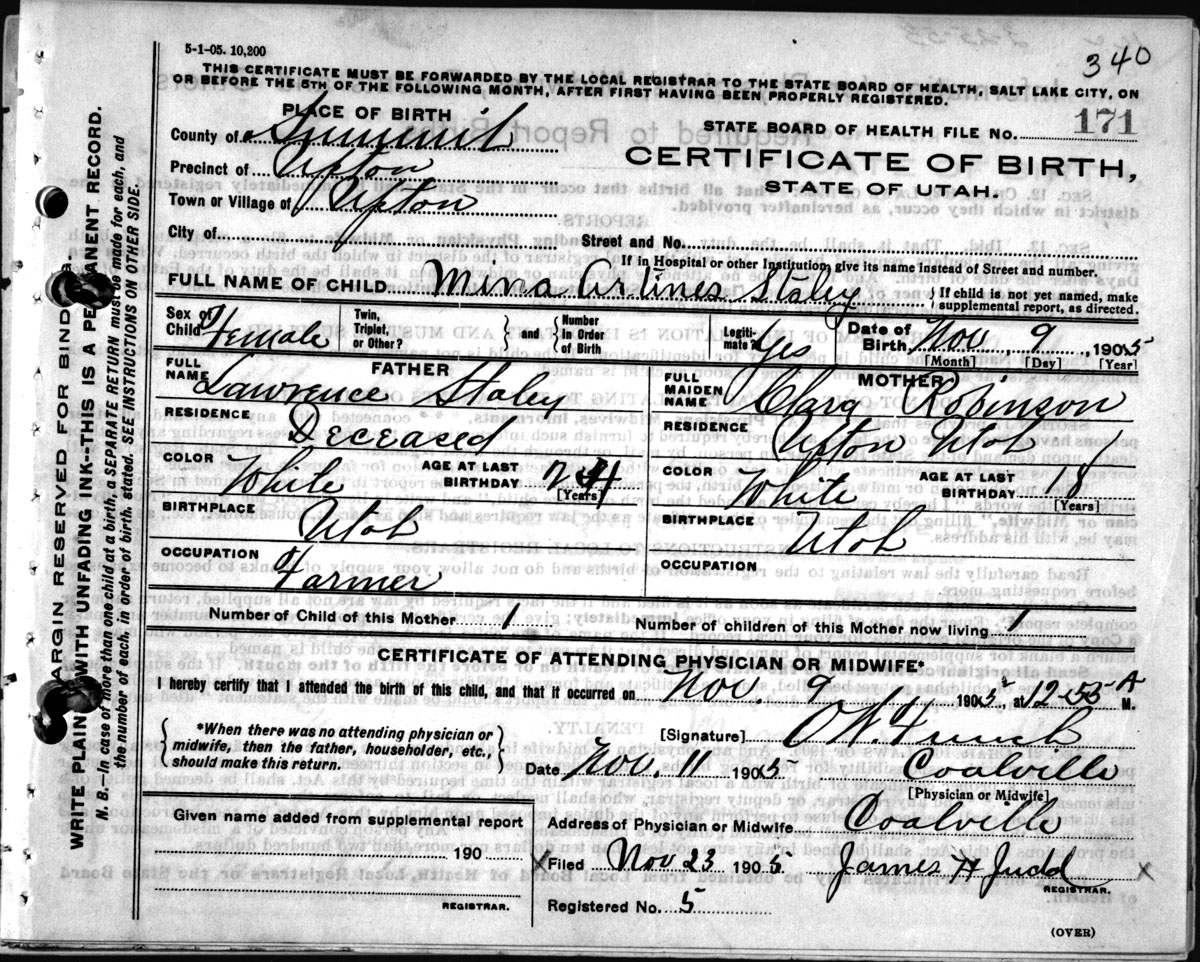 5-1-05. 10,200
340
THIS CERTIFICATE MUST BE FORWARDED BY THE LOCAL REGISTRAR TO THE STATE BOARD OF HEALTH, SALT LAKE CITY, ON
OR BEFORE THE 5TH OF THE FOLLOWING MONTH, AFTER FIRST HAVING BEEN PROPERLY REGISTERED.
PLACE OF BIRTH
STATE BOARD OF HEALTH FILE No. 171
County of Summit
CERTIFICATE OF BIRTH,
Precinct of Upton
STATE OF UTAH.
Town or Village of Upton
City of Street and No.
If in Hospital or other Institution, give its name instead of Street and number.
FULL NAME OF CHILD Mina Arlines Staley { If child is not yet named, make
supplemental report, as directed.
Sex of Child Female
Twin, Triplet, or Other? } and { Number In Order of Birth
Legitimate? Yes
Date of Birth, Nov 9, 1905
[Month] [Day] [Year]
FATHER
FULL NAME Lawrence Staley
RESIDENCE Deceased
COLOR White AGE AT LAST BIRTHDAY 24
[Years]
BIRTHPLACE Utah
OCCUPATION Farmer
MOTHER
FULL MAIDEN NAME Clara Robinson
RESIDENCE Upton Utah
COLOR White AGE AT LAST BIRTHDAY 18
[Years]
BIRTHPLACE Utah
OCCUPATION
Number of Child of this Mother 1 Number of children of this Mother now living 1
CERTIFICATE OF ATTENDING PHYSICIAN OR MIDWIFE*
I hereby certify that I attended the birth of this child, and that it occurred on Nov. 9 1905, at 12-55 A M.
{ *When there was no attending physician or
midwife, then the father, householder, etc.,
should make this return. }
[Signature]
Date Nov. 11 1905 Coalville
[Physician or Midwife]
Address of Physician or Midwife Coalville
Given name added from supplemental report
190
REGISTRAR.
X Filed Nov 23 1905. James H Judd X
REGISTRAR.
Registered No. 5
(OVER)
MARGIN RESERVED FOR BINDING.
WRITE PLAINLY WITH UNFADING INK--THIS IS A PERMANENT RECORD.
N. B.—In case of more than one child at a birth, a SEPARATE RETURN must be made for each, and
the number of each, in order of birth, stated. SEE INSTRUCTIONS ON OTHER SIDE.